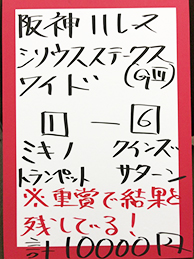 阪神11レース
シリウスステークス
ワイド (GⅢ)
1 ー 6
ミキノ クインズ
トランペット サターン
※重賞で結果と
残してる!
計10000円